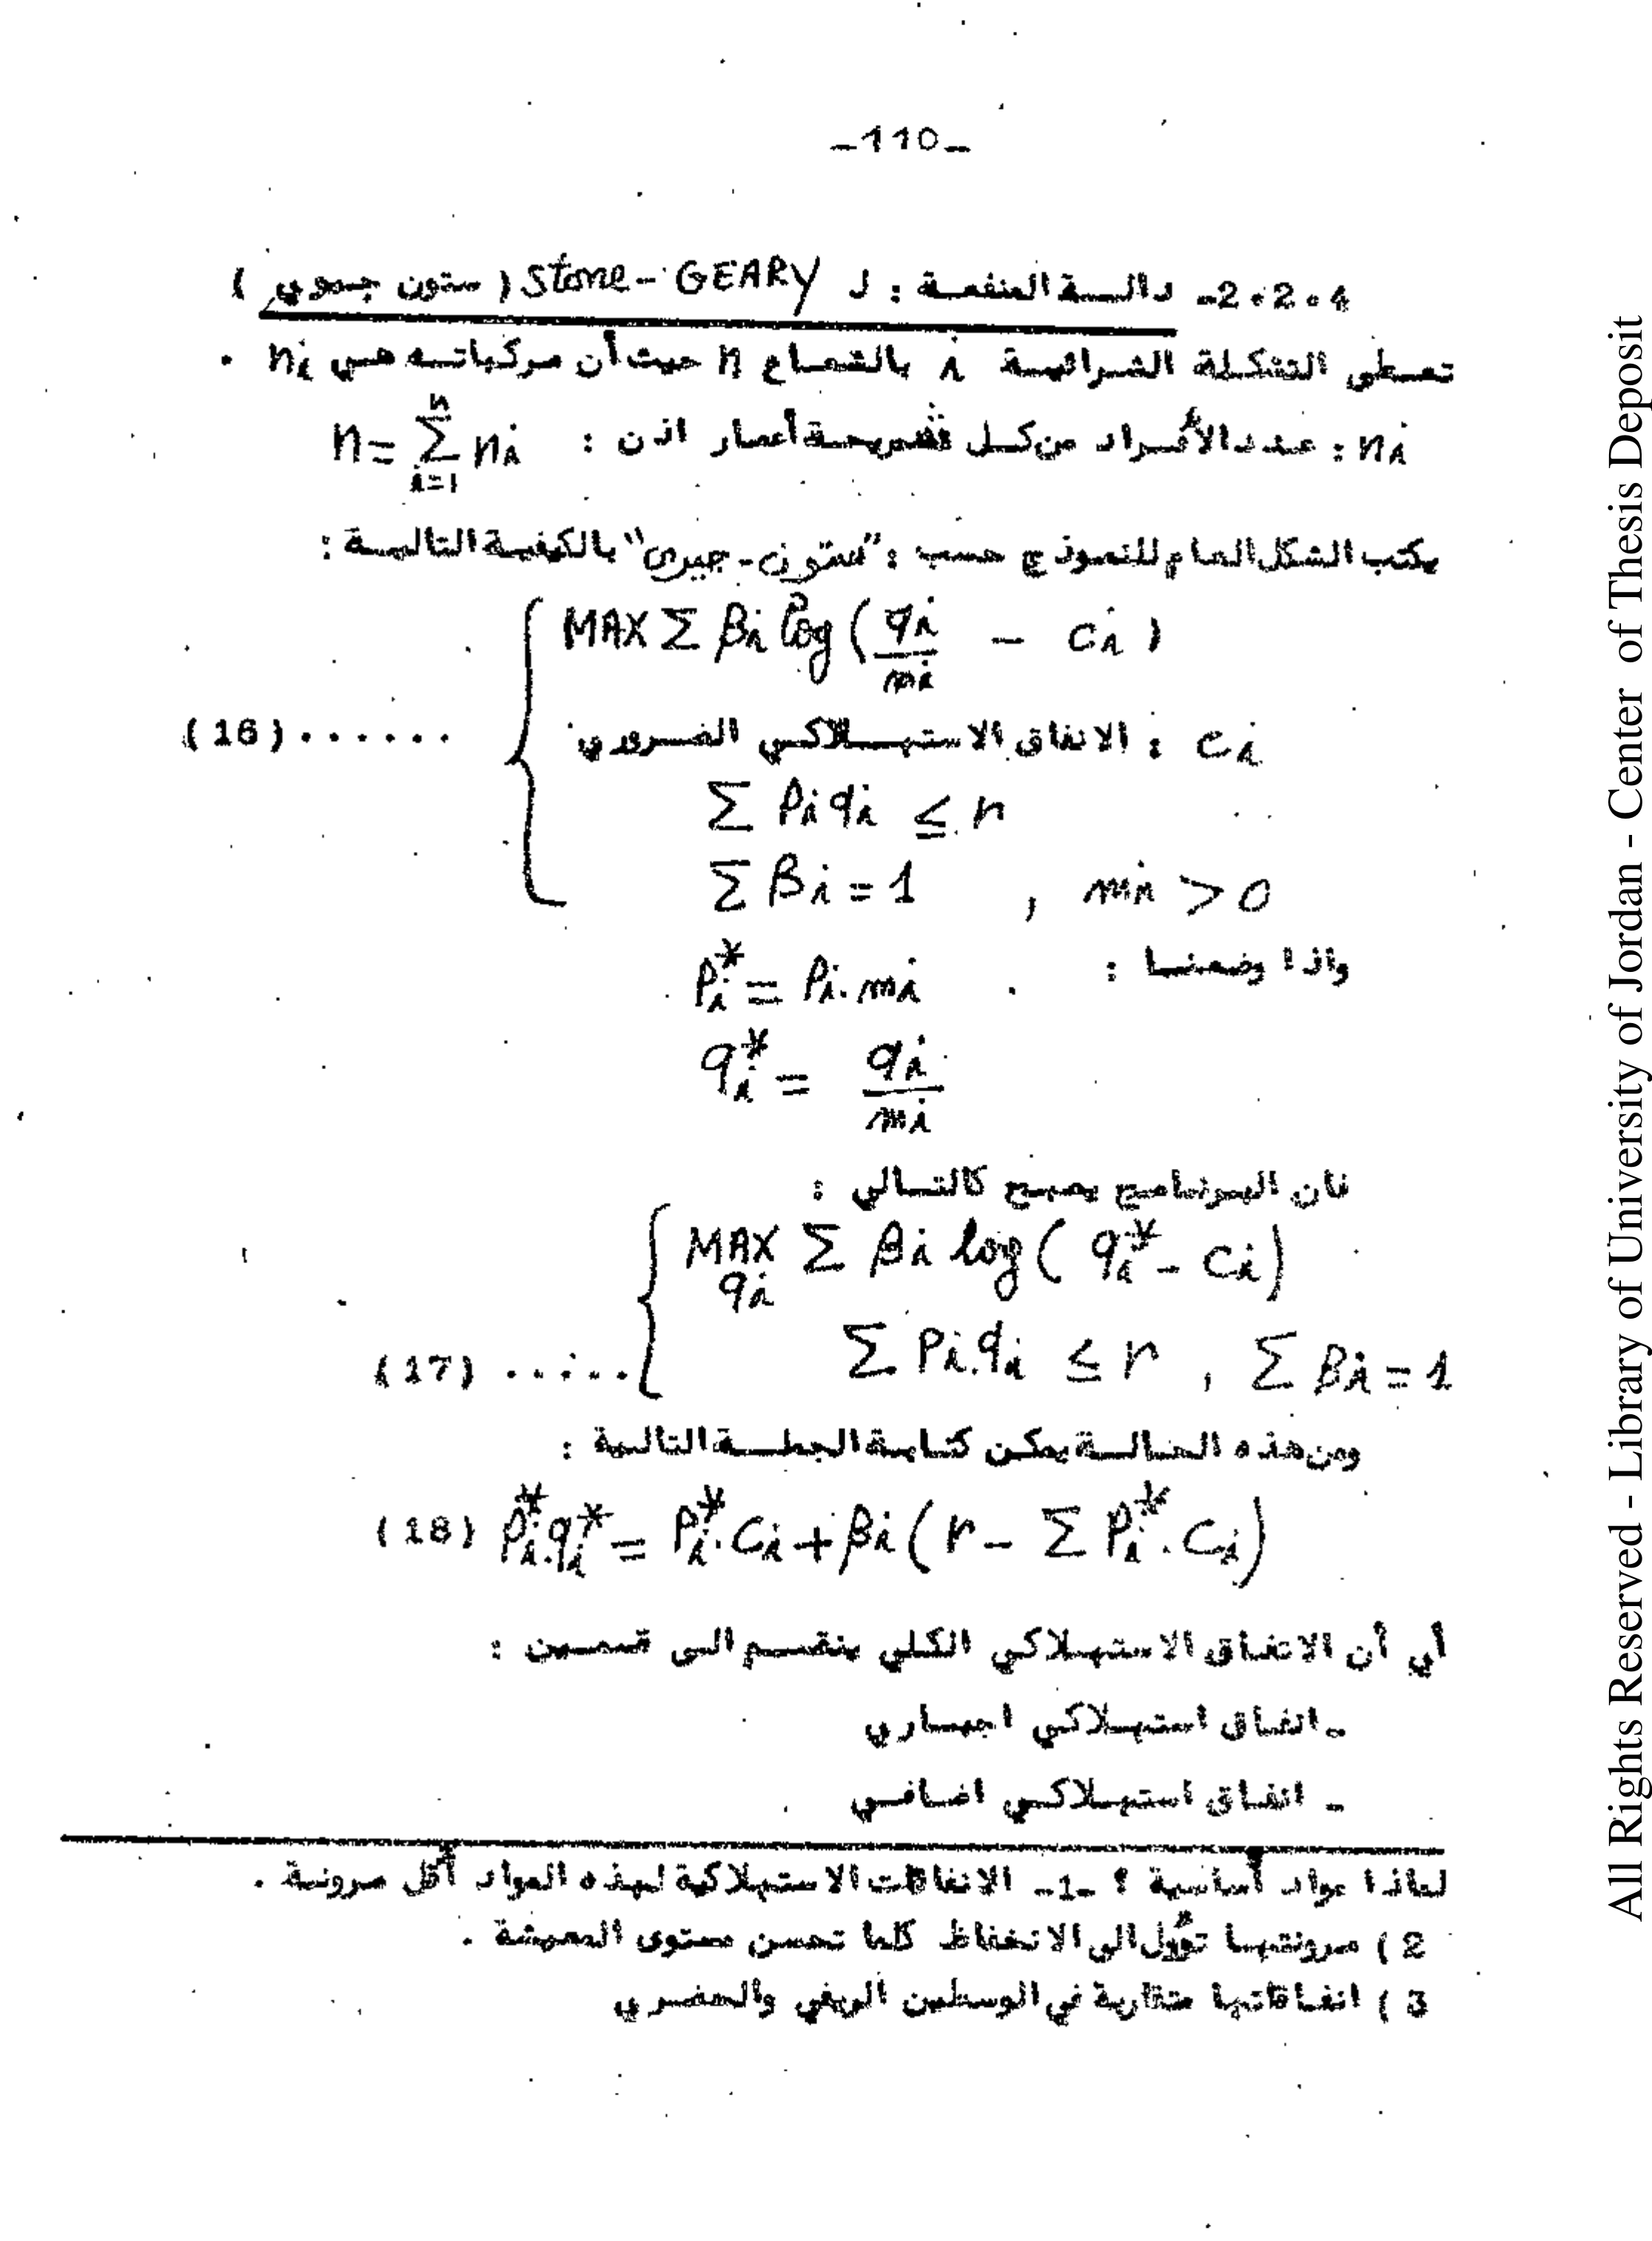 -110-
2.2.4- دالة المنفعة : لـ Stone-GEARY (ستون جيري)
تعطى التشكلة الشرائية i بالشعاع n حيث أن مركباته هي ni .
ni : عدد الأفراد من كل شريحة أعمار اذن : n = Σ_{i=1}^{n} ni
يكتب الشكل العام للنموذج حسب : "ستون-جيرى" بالكيفية التالية :
MAX Σ βi log ( qi/mi - ci )
(16)...... ci : الانفاق الاستهلاكي الضروري
Σ Pi qi ≤ r
Σ βi = 1 , mi > 0
واذا وضعنا : Pi* = Pi. mi
qi* = qi/mi
فان البرنامج يصبح كالتالي :
MAX_{qi} Σ βi log ( qi* - ci )
(17) ..... Σ Pi.qi ≤ r , Σ βi = 1
ومن هذه الحالة يمكن كتابة الجملة التالية :
(18) Pi*.qi* = Pi*.Ci + βi ( r - Σ Pi*. Ci )
أي أن الانفاق الاستهلاكي الكلي ينقسم الى قسمين :
- انفاق استهلاكي اجباري
- انفاق استهلاكي اضافي
لماذا مواد أساسية ؟ -1- الانفاقات الاستهلاكية لهذه المواد أقل مرونة .
2 ) مرونتها تؤول الى الانخفاظ كلما تحسن مستوى المعيشة .
3 ) انفاقاتها متقاربة في الوسطين الريفي والحضري
All Rights Reserved - Library of University of Jordan - Center of Thesis Deposit